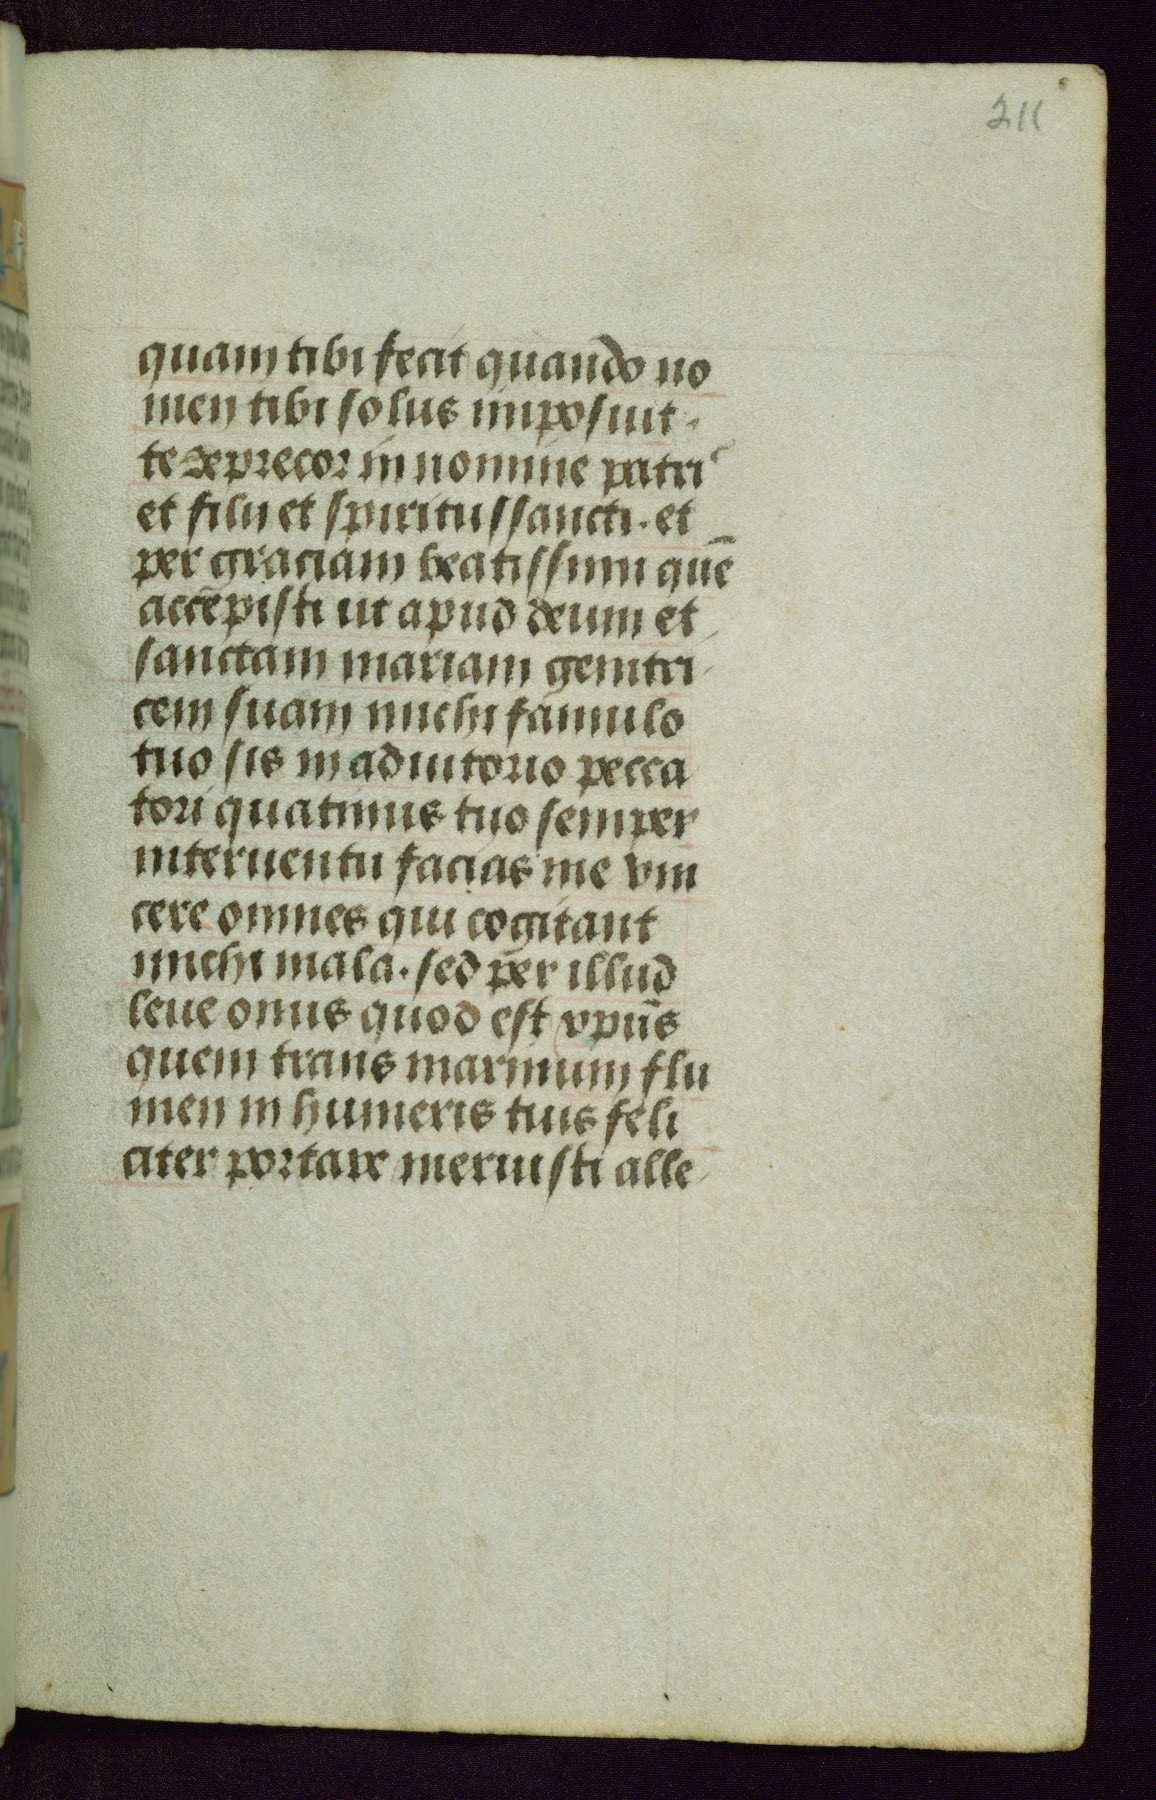 211
quam tibi fecit quando no
men tibi solus imposuit.
te deprecor in nomine patris
et filij et spiritussancti. et
per graciam beatissimi quē
accēpisti ut apud deum et
sanctam mariam genitri
cem suam michi famulo
tuo sis in adiutorio pecca
tori quatinus tuo semper
interuentu facias me vin
cere omnes qui cogitant
michi mala. sed per illud
leue onus quod est xpūs
quem trans marinum flu
men in humeris tuis feli
citer portare meruisti alle